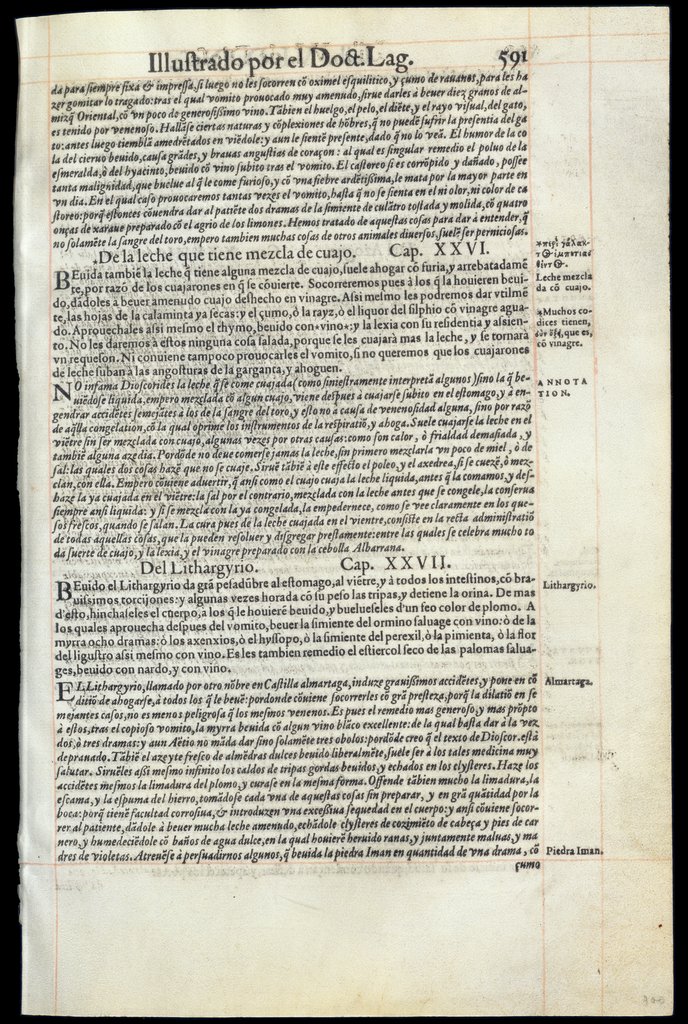 Illustrado por el Doct. Lag. 591
da para siempre fixa & impressa, si luego no les socorren cõ oximel esquilitico, y çumo de rauanos, para les ha
zer gomitar lo tragado: tras el qual vomito prouocado muy amenudo, sirue darles à beuer diez granos de al-
mizq̃ Oriental, cõ vn poco de generosissimo vino. Tãbien el huelgo, el pelo, el diẽte, y el rayo visual, del gato,
es tenido por venenoso. Hallãse ciertas naturas y cõplexiones de hõbres, q̃ no puedẽ sufrir la presentia del ga
to: antes luego tiemblã amedrẽtados en viẽdole: y aun le sientẽ presente, dado q̃ no lo veã. El humor de la co
la del cieruo beuido, causa grãdes, y brauas angustias de coraçon: al qual es singular remedio el poluo de la
esmeralda, ò del hyacinto, beuido cõ vino subito tras el vomito. El castoreo si es corrõpido y dañado, possee
tanta malignidad, que buelue al q̃ le come furioso, y cõ vna fiebre ardẽtissima, le mata por la mayor parte en
vn dia. En el qual caso prouocaremos tantas vezes el vomito, hasta q̃ no se sienta en el ni olor, ni color de ca
storeo: porq̃ estonces cõuendra dar al patiẽte dos dramas de la simiente de culãtro tostada y molida, cõ quatro
onças de xaraue preparado cõ el agrio de los limones. Hemos tratado de aquestas cosas para dar à entender, q̃
no solamẽte la sangre del toro, empero tambien muchas cosas de otros animales diuersos, suelẽ ser perniciosas.
*De la leche que tiene mezcla de cuajo. Cap. XXVI.
BEuida tambiẽ la leche q̃ tiene alguna mezcla de cuajo, suele ahogar cõ furia, y arrebatadamẽ
te, por razõ de los cuajarones en q̃ se cõuierte. Socorreremos pues à los q̃ la houieren beui-
do, dãdoles à beuer amenudo cuajo deshecho en vinagre. Assi mesmo les podremos dar vtilmẽ
te, las hojas de la calaminta ya secas: y el çumo, ò la rayz, ò el liquor del silphio cõ vinagre agua-
do. Aprouechales assi mesmo el thymo, beuido con*vino*: y la lexia con su residentia y assien-
to. No les daremos à estos ninguna cosa salada, porque se les cuajarà mas la leche, y se tornarà
vn requeson. Ni conuiene tampoco prouocarles el vomito, si no queremos que los cuajarones
de leche suban à las angosturas de la garganta, y ahoguen.
NO infama Dioscorides la leche q̃ se come cuajada (como siniestramente interpretã algunos) sino la q̃ be-
uiẽdose liquida, empero mezclada cõ algun cuajo, viene despues à cuajarse subito en el estomago, y à en-
gendrar accidẽtes semejãtes à los de la sangre del toro, y esto no a causa de venenosidad alguna, sino por razõ
de aq̃lla congelation, cõ la qual oprime los instrumentos de la respiratiõ, y ahoga. Suele cuajarse la leche en el
viẽtre sin ser mezclada con cuajo, algunas vezes por otras causas: como son calor, ò frialdad demasiada, y
tambiẽ alguna azedia. Pordõde no deue comerse jamas la leche, sin primero mezclarla vn poco de miel, ò de
sal: las quales dos cosas hazẽ que no se cuaje. Siruẽ tãbiẽ à este effecto el poleo, y el axedrea, si se cuezẽ, ò mez-
clan, con ella. Empero cõuiene aduertir, q̃ ansi como el cuajo cuaja la leche liquida, antes q̃ la comamos, y des-
haze la ya cuajada en el viẽtre: la sal por el contrario, mezclada con la leche antes que se congele, la conserua
siempre ansi liquida: y si se mezcla con la ya congelada, la empedernece, como se vee claramente en los que-
sos frescos, quando se salan. La cura pues de la leche cuajada en el vientre, consiste en la recta administratiõ
de todas aquellas cosas, que la pueden resoluer y disgregar prestamente: entre las quales se celebra mucho to
da suerte de cuajo, y la lexia, y el vinagre preparado con la cebolla Albarrana.
Del Lithargyrio. Cap. XXVII.
BEuido el Lithargyrio da grã pesadũbre al estomago, al viẽtre, y à todos los intestinos, cõ bra-
uissimos torcijones: y algunas vezes horada cõ su peso las tripas, y detiene la orina. De mas
d'esto, hinchaseles el cuerpo, a los q̃ le houierẽ beuido, y bueluseles d'un feo color de plomo. A
los quales aprouecha despues del vomito, beuer la simiente del ormino saluage con vino: ò de la
myrra ocho dramas: ò los axenxios, ò el hyssopo, ò la simiente del perexil, ò la pimienta, ò la flor
del ligustro assi mesmo con vino. Es les tambien remedio el estiercol seco de las palomas salua-
ges, beuido con nardo, y con vino.
EL Lithargyrio, llamado por otro nõbre en Castilla almartaga, induze grauissimos accidẽtes, y pone en cõ
ditiõ de ahogarse, à todos los q̃ le beuẽ: pordonde cõuiene socorrerles cõ grã presteza, porq̃ la dilatiõ en se
mejantes casos, no es menos peligrosa q̃ los mesmos venenos. Es pues el remedio mas generoso, y mas prõpto
à estos, tras el copioso vomito, la myrra beuida cõ algun vino blãco excellente: de la qual basta dar à la vez
dos, ò tres dramas: y aun Aëtio no mãda dar sino solamẽte tres obolos: pordõde creo q̃ el texto de Dioscor. està
deprauado. Tãbiẽ el azeyte fresco de almẽdras dulces beuido liberalmẽte, suele ser à los tales medicina muy
salutar. Siruẽles assi mesmo infinito los caldos de tripas gordas beuidos, y echados en los clysteres. Haze los
accidẽtes mesmos la limadura del plomo, y curase en la mesma forma. Offende tãbien mucho la limadura, la
escama, y la espuma del hierro, tomãdose cada vna de aquestas cosas sin preparar, y en grã quãtidad por la
boca: porq̃ tienẽ facultad corrosiua, & introduzen vna excessiua sequedad en el cuerpo: y ansi cõuiene socor-
rer al patiente, dãdole à beuer mucha leche amenudo, echãdole clysteres de cozimiẽto de cabeça y pies de car
nero, y humedeciẽdole cõ baños de agua dulce, en la qual houierẽ heruido ranas, y juntamente maluas, y ma
dres de violetas. Atreuẽse à persuadirnos algunos, q̃ beuida la piedra Iman en quantidad de vna drama, cõ
çumo
Leche mezcla
da cõ cuajo.
*Muchos co-
dices tienen,
que es,
cõ vinagre.
ANNOTA
TION.
Lithargyrio.
Almartaga.
Piedra Iman.